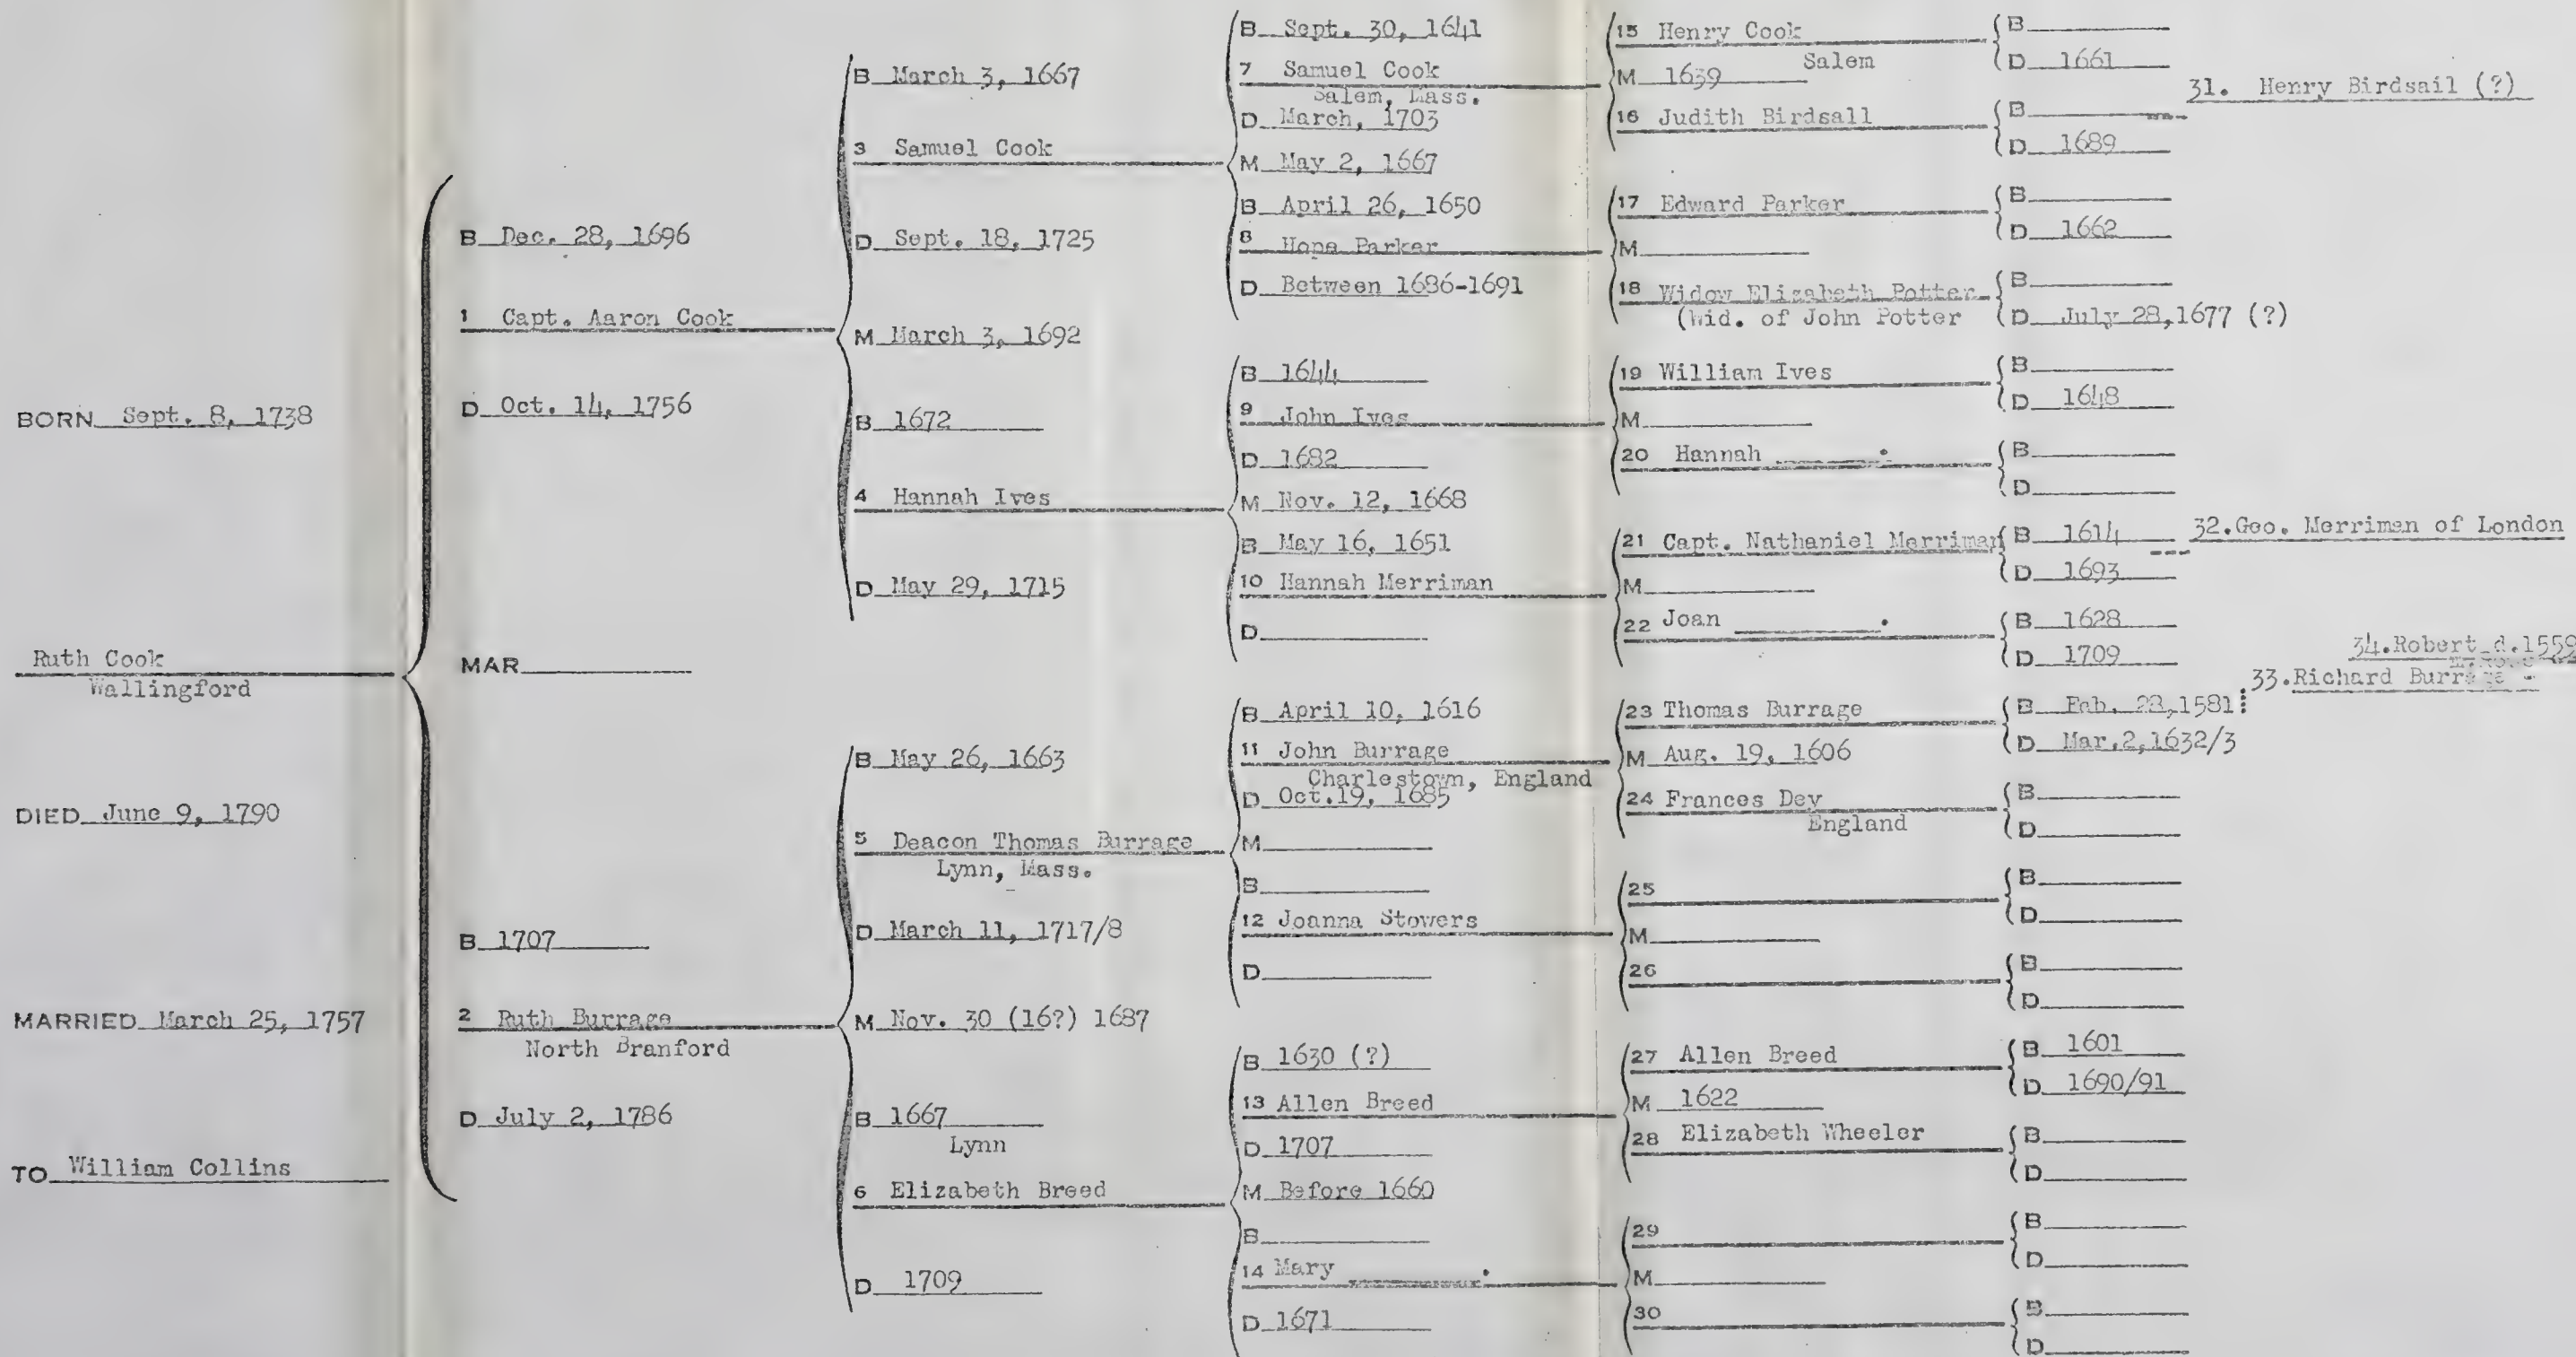 BORN Sept. 8, 1738
Ruth Cook
Wallingford
DIED June 9, 1790
MARRIED March 25, 1757
TO William Collins
B Dec. 28, 1696
1 Capt. Aaron Cook
D Oct. 14, 1756
MAR
B 1707
2 Ruth Burrage
North Branford
D July 2, 1786
B March 3, 1667
3 Samuel Cook
D Sept. 18, 1725
M March 3, 1692
B 1672
4 Hannah Ives
D May 29, 1715
B May 26, 1663
5 Deacon Thomas Burrage
Lynn, Mass.
D March 11, 1717/8
M Nov. 30 (16?) 1687
B 1667
Lynn
6 Elizabeth Breed
D 1709
B Sept. 30, 1641
7 Samuel Cook
Salem, Mass.
D March, 1703
M May 2, 1667
B April 26, 1650
8 Hope Parker
D Between 1686-1691
B 1644
9 John Ives
D 1682
M Nov. 12, 1668
B May 16, 1651
10 Hannah Merriman
D
B April 10, 1616
11 John Burrage
Charlestown, England
D Oct.19, 1685
M
B
12 Joanna Stowers
D
B 1630 (?)
13 Allen Breed
D 1707
M Before 1660
B
14 Mary .
D 1671
15 Henry Cook
Salem
M 1639
16 Judith Birdsall
17 Edward Parker
M
18 Widow Elizabeth Potter
(Wid. of John Potter
19 William Ives
M
20 Hannah .
21 Capt. Nathaniel Merriman
M
22 Joan .
23 Thomas Burrage
M Aug. 19, 1606
24 Frances Dey
England
25
M
26
27 Allen Breed
M 1622
28 Elizabeth Wheeler
29
M
30
B
D 1661
B
D 1689
B
D 1662
B
D July 28,1677 (?)
B
D 1648
B
D
B 1614
D 1693
B 1628
D 1709
B Feb. 28,1581
D Mar.2,1632/3
B
D
B
D
B
D
B 1601
D 1690/91
B
D
B
D
B
D
31. Henry Birdsail (?)
32.Geo. Merriman of London
34.Robert d.1559
33.Richard Burrage